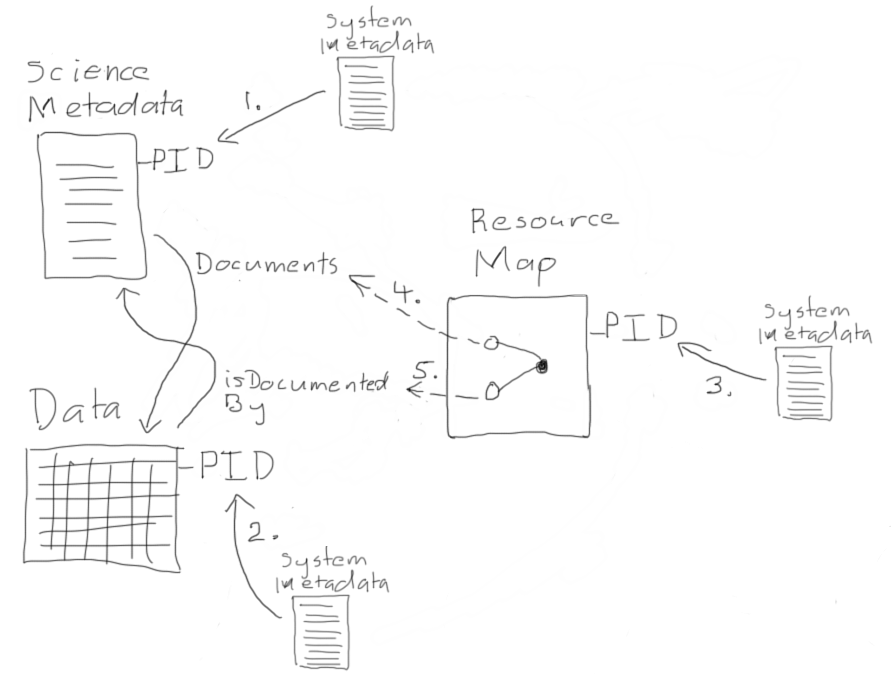 System
Metadata
Science
Metadata
1.
PID
Documents
Resource
Map
4.
PID
System
Metadata
3.
5.
isDocumented
By
Data
PID
2.
System
Metadata